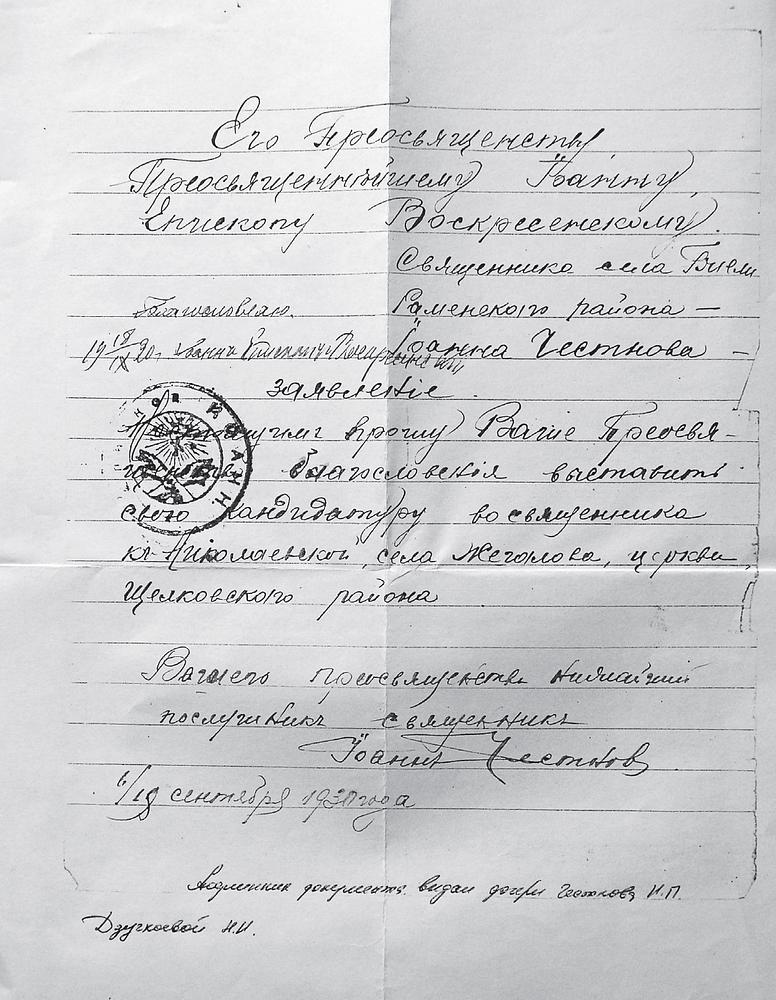 Его Преосвященству
Преосвященнѣйшему Іоанну,
Епископу Воскресенскому.
Священника села
Благословляю. Раменского района —
19 18/IX 30. Іоанна Честнова —
заявленіе.
прошу Ваше Преосвя-
благословенія выставить
свою кандидатуру во священника
къ Николаевской, села Жегалова, церкви,
Щелковского района
Вашего преосвященства нижайшій
послушникъ священникъ
Іоаннъ Честнов
6/19 сентября 1930 года
Подлинник документа выдан дочери Честнова И.П.
Дзучкоевой Н.И.